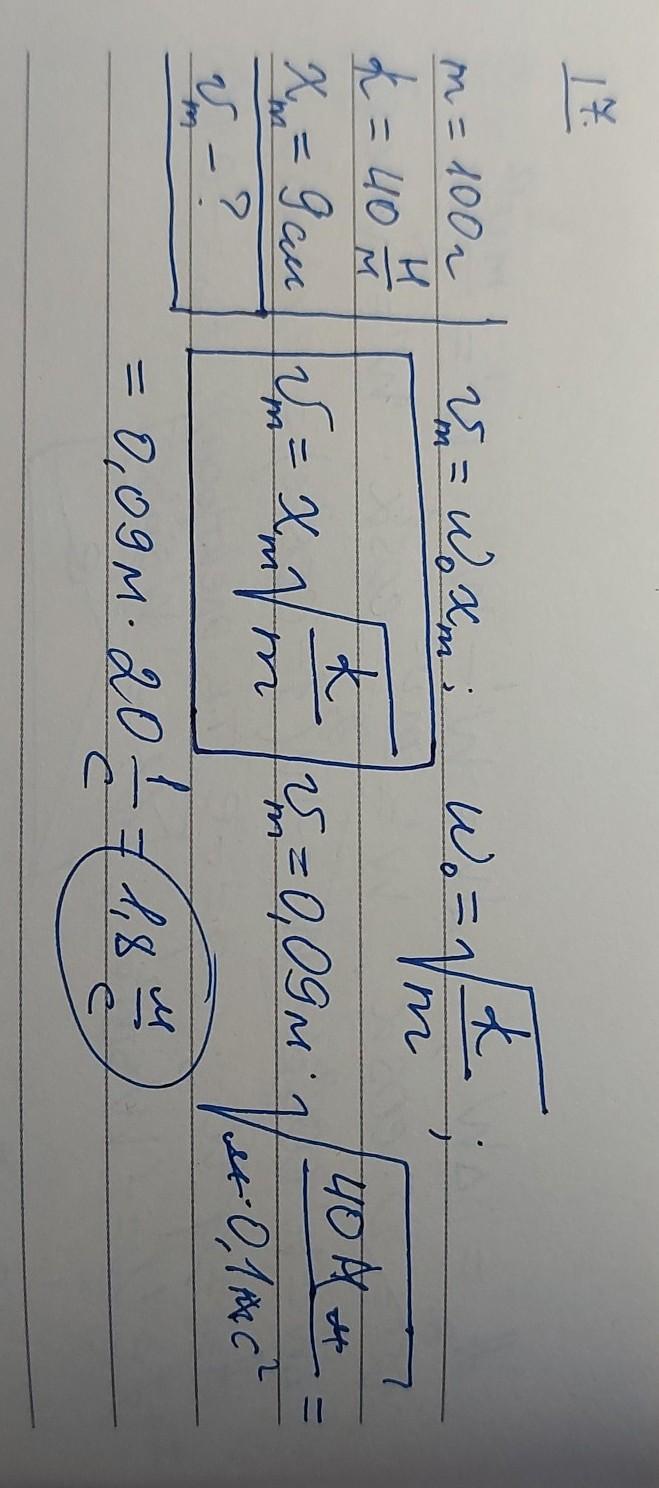 17.
m = 100 г
k = 40 Н/м
x_m = 9 см
v_m - ?
v_m = ω₀ x_m; ω₀ = √(k/m);
v_m = x_m √(k/m) v_m = 0,09 м · √(40 Н м / м · 0,1 Н с²) =
= 0,09 м · 20 1/с = 1,8 м/с